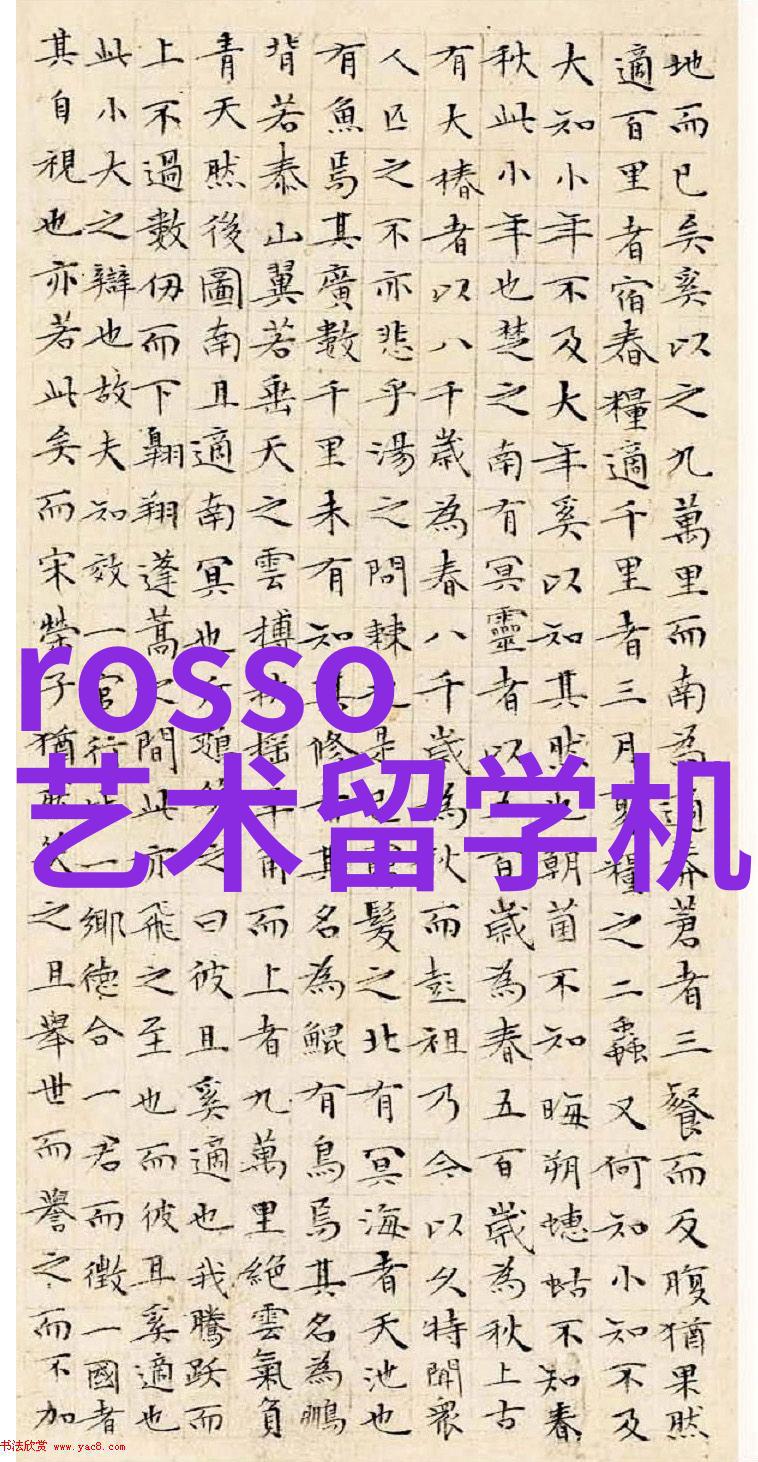 地而已矣奚以之九萬里而南為適莽蒼者三餐而反腹猶果然
適百里者宿舂糧適千里者三月聚糧之二蟲又何知小知不及
大知小年不及大年奚以知其然也朝菌不知晦朔蟪蛄不知春
秋此小年也楚之南有冥靈者以五百歲為春五百歲為秋上古
有大椿者以八千歲為春八千歲為秋而彭祖乃今以久特聞衆
人匹之不亦悲乎湯之問棘也是已窮髮之北有冥海者天池也
有魚焉其廣數千里未有知其修者其名為鯤有鳥焉其名為鵬
背若泰山翼若垂天之雲摶扶搖羊角而上者九萬里絕雲氣負
青天然後圖南且適南冥也斥鴳笑之曰彼且奚適也我騰躍而
上不過數仞而下翱翔蓬蒿之間此亦飛之至也而彼且奚適也
此小大之辯也故夫知效一官行比一鄉德合一君而徵一國者
其自視也亦若此矣而宋榮子猶然笑之且舉世而譽之而不加
rosso
艺术留学机
书法欣赏 www.yac8.com